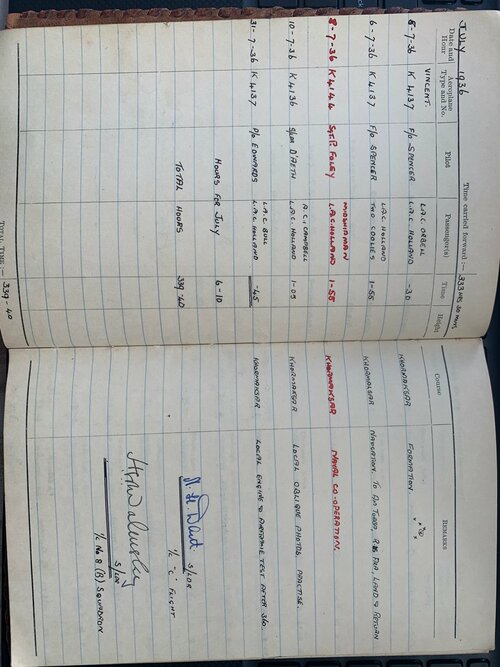 JULY 1936
Time carried forward :— 333 HRS 30 MINS
Date and Hour
Aeroplane Type and No.
Pilot
Passenger(s)
Time
Height
Course
REMARKS
VINCENT.
L.A.C. ORBELL
8-7-36 K 4137 F/O SPENCER L.A.C. HOLLAND -30 KHORMAKSAR FORMATION.
L.A.C. HOLLAND
6-7-36 K 4137 F/O SPENCER TWO COOLIES 1-55 KHORMAKSAR NAVIGATION. TO AM TURBA, LAND & RETURN
MIDSHIPMAN
8-7-36 K 4144 SGT. P. FOLEY L.A.C. HOLLAND 1-55 KHORMAKSAR NAVAL CO-OPERATION.
A.C.1 CAMPBELL
10-7-36 K 4136 S/LDR D'AETH L.A.C. HOLLAND 1-05 KHORMAKSAR LOCAL OBLIQUE PHOTOS. PRACTISE.
L.A.C. BULL
31-7-36 K 4137 P/O EDWARDS L.A.C. HOLLAND -45 KHORMAKSAR LOCAL ENGINE & AIRFRAME TEST AFTER 360.
HOURS FOR JULY 6-10
TOTAL HOURS 339-40
S/LDR
I/C "C" FLIGHT
S/LDR
I/C No 8 (B) SQUADRON
TOTAL TIME :— 339-40